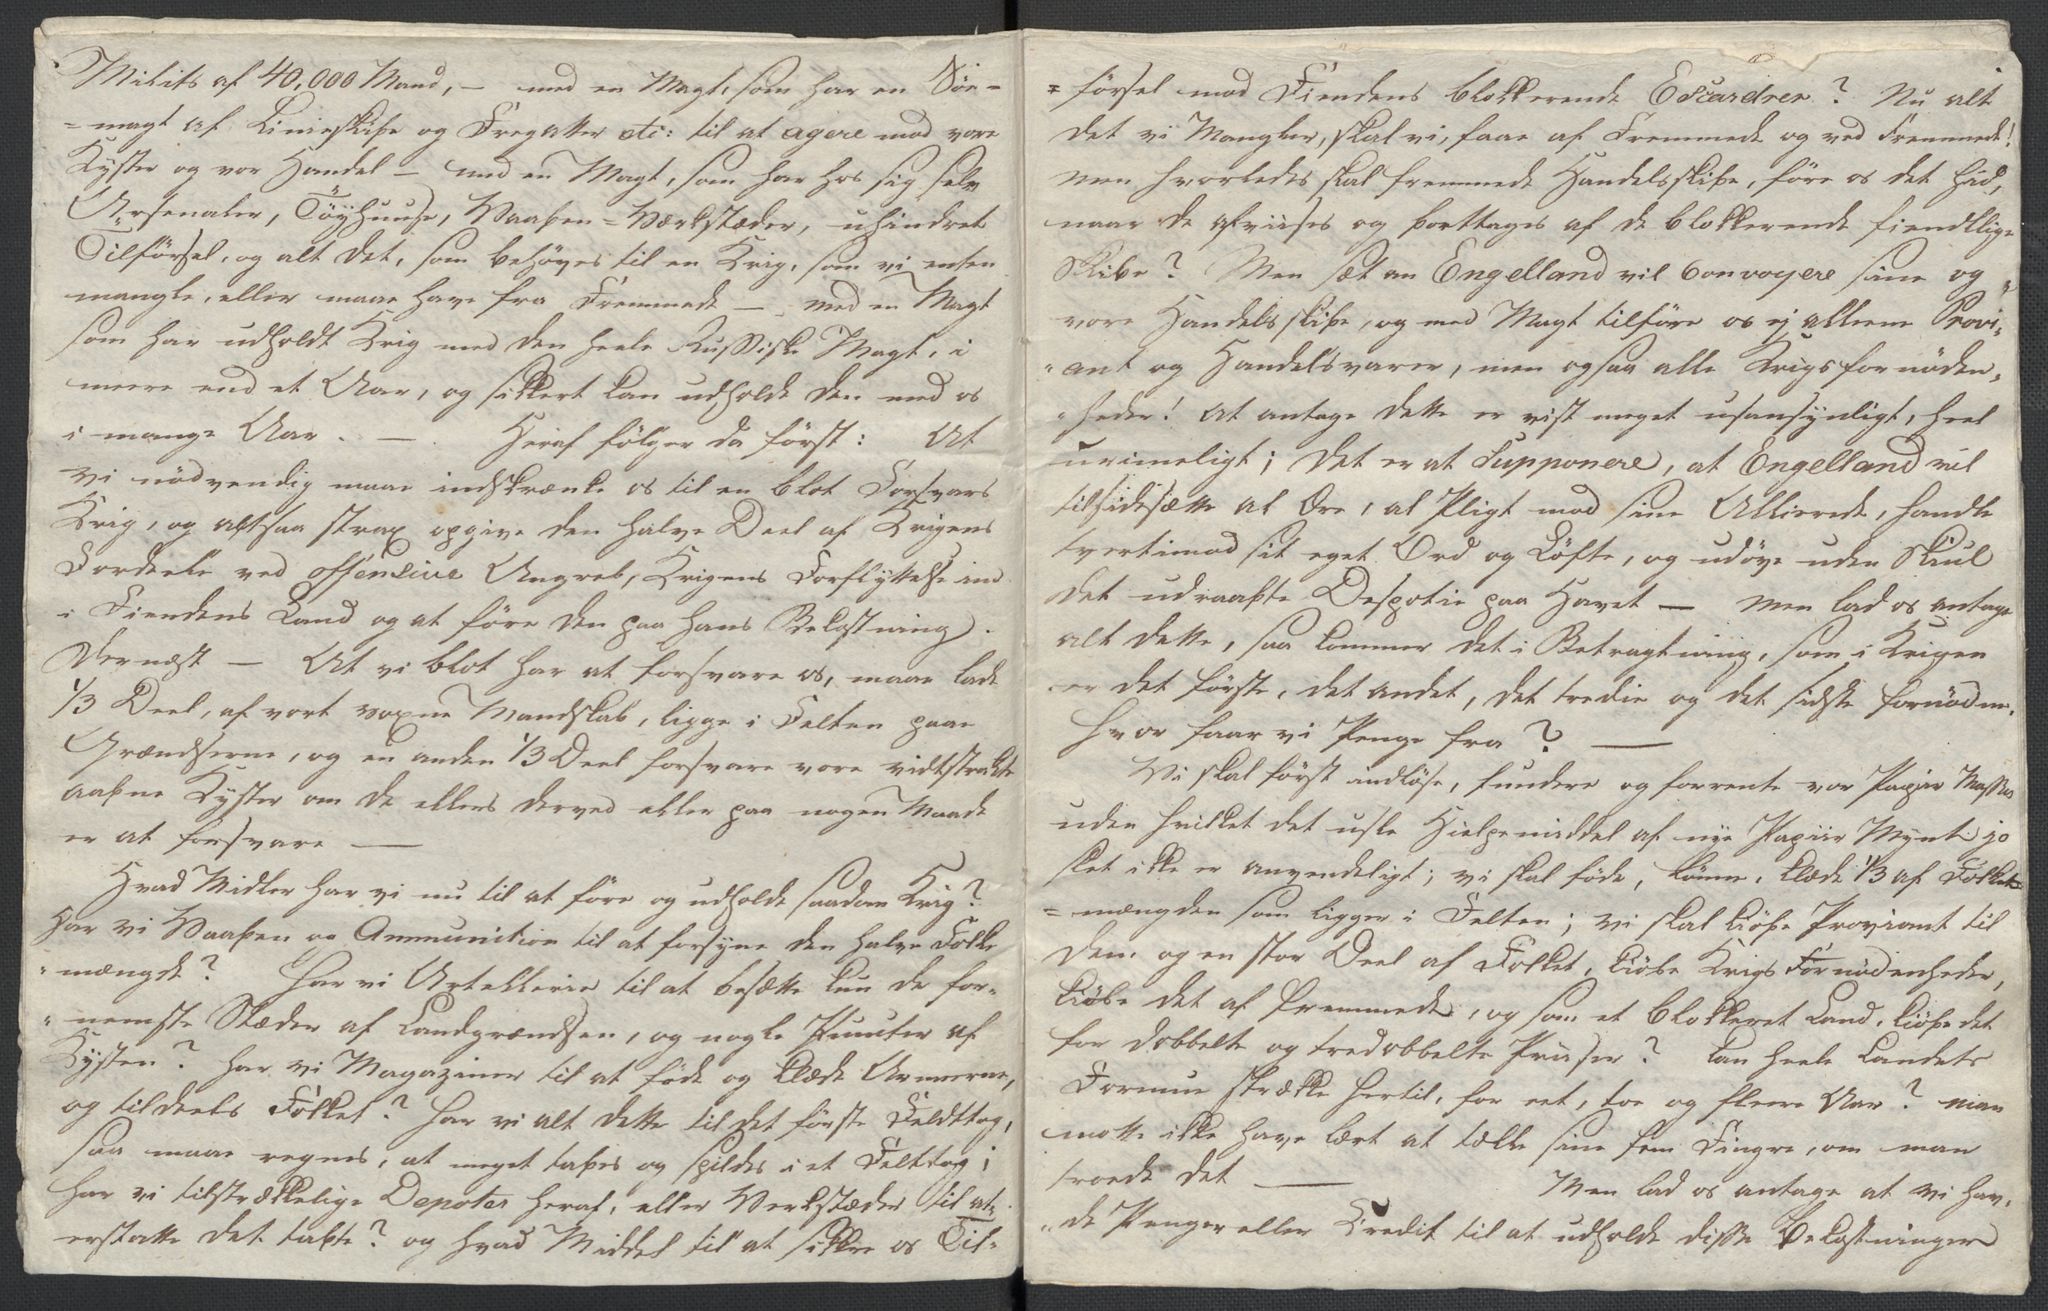 Milits af 40,000 Mand, — med en Magt, som har en Söe-
=magt af Linieskibe og Fregatter etc: til at agere mod vore
Kyster og vor Handel — med en Magt, som har hos sig selv
Arsenaler, Töyhuuse, Vaaben=Værkstæder, uhindret
Tilförsel, og alt det, som behöves til en Krig, som vi enten
mangle, eller maae have fra Fremmede — med en Magt
som har udholdt Krig med den heele Russiske Magt, i
meere end et Aar, og sikkert kan udholde den med os
i mange Aar. — Heraf fölger da först: At
vi nödvendig maae indskrænke os til en blot Forsvars
Krig, og altsaa strax opgive den halve Deel af Krigens
Fordeele ved offensive Angreb, Krigens Forflyttelse ind
i Fiendens Land og at före den paa hans Bekostning.
Dernæst — At vi blot har at forsvare os, maae lade
1/3 Deel, af vort voxne Mandskab, ligge i Felten paae
Grændserne, og en anden 1/3 Deel forsvare vore vidtstrakte
aabne Kyster om de ellers derved eller paa nogen Maade
er at forsvare —
Hvad Midler har vi nu til at före og udholde saadan Krig?
Har vi Vaaben og Ammunition til at forsyne den halve Folke
"mængde? Har vi Artellerie til at besætte kun de for-
"nemste Stæder af Landgrændsen, og nogle Puncter af
Kysten? Har vi Magaziner til at föde og klæde Armeerne,
og tildeels Folket? Har vi alt dette til det förste Feldttog,
saa maae regnes, at meget tabes og spildes i et Felttog;
har vi tilstrækkelige Depoter heraf, eller Verkstæder til at
erstatte det tabte? og hvad Middel til at sikkre os Til-
=försel mod Fiendens blokkerende Escardrer? Nu alt
det vi Mangler, skal vi, faae af Fremmede og ved Fremmede!
men hvorledes skal fremmede Handelsskibe, före os det hid,
naar de afviises og borttages af de blokkerende fiendtlige
Skibe? Men sæt an Engelland vil Convoyere sine og
vore Handelsskibe, og med Magt tilföre os ej alleene Provi-
"ant og Handelsvarer, men ogsaa alle Krigsfornöden-
"heder! At antage dette er vist meget usansynligt, heel
urimeligt; det er at Supponere, at Engelland vil
tilsidesætte al Ære, al Pligt mod sine Allierede, handle
tvertimod sit eget Ord og Löfte, og udöve uden Skiul
det udraabte Despotie paa Havet — Men lad os antage
alt dette, saa kommer det i Betragtning, som i Krigen
er det förste, det andet, det tredie og det sidste fornödne.
Hvor faar vi Penge fra? —
Vi skal först indlöse, fundere og forrente vor Papiir Masse
uden hvilket det usle Hielpemiddel af nye Papiir Mynt jo
slet ikke er anvendeligt; vi skal föde, lönne, klæde 1/3 af Folke
=mængden som ligger i Felten; vi skal kiöbe Proviant til
dem, og en stor Deel af Folket, kiöbe Krigs Fornödenheder,
kiöbe det af Fremmede, og som et blokkeret Land, kiöbe det
for dobbelte og tredobbelte Priiser? kan heele Landets
Formue strække hertil, for eet, toe og fleere Aar? man
motte ikke have lært at tælle sine fem Fingre, om man
troede det — Men lad os antage at vi hav-
"de Penger eller Credit til at udholde disse Bekostninger